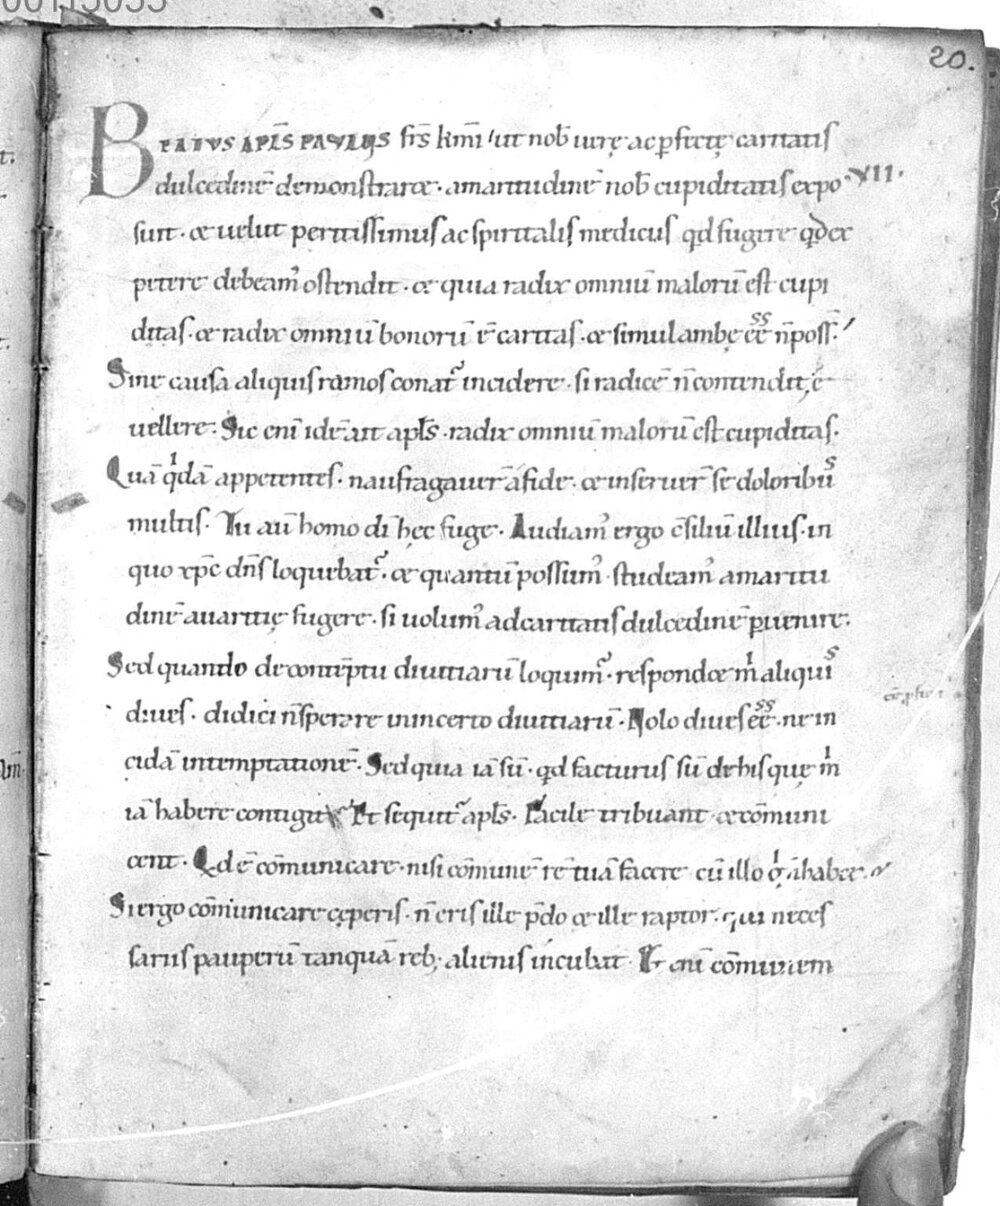 20.
BEATVS APL̅S PAVLVS fr̅s km̅i ut nob̅ uerę ac ꝑfectę caritatis
dulcedine̅ demonstraret · amaritudine̅ nob̅ cupiditatis expo
XII.
suit · et uelut peritissimus ac spiritalis medicus qđ fugere qđ ex
petere debeam᾽ ostendit · et quia radix omniu̅ maloru̅ est cupi
ditas · et radix omniu̅ bonoru̅ e̅ caritas · et simul ambę ee̅ n̅ poss̅
Sine causa aliquis ramos conat᾽ incidere · si radice̅ n̅ contendit e
uellere · Sic eni̅ ide̅ ait apl̅s · radix omniu̅ maloru̅ est cupiditas ·
Qua̅ qida̅ appetentes · naufragauer̅ a fide · et inseruer̅ se dolorib᾽
multis · Tu au̅ homo di̅ hęc fuge · Audiam᾽ ergo c̅siliu̅ illius · in
quo xp̅c dn̅s loquebat᾽ · et quantu̅ possum᾽ · studeam᾽ amaritu
dine̅ auaritię fugere · si uolum᾽ ad caritatis dulcedine̅ ꝑuenire ·
Sed quando de conte̅ptu diuitiaru̅ loquim᾽ · respondet m̅ aliquis
diues · didici n̅ sperare in incerto diuitiaru̅ · Nolo diues ee̅ · ne in
cida̅ in temptatione̅ · Sed quia ia̅ su̅ · qđ facturus su̅ de his quę m̅
ia̅ habere contigit Et sequit᾽ apl̅s · Facile tribuant et co̅muni
cent · Qd e̅ co̅municare · nisi co̅mune̅ re̅ tua̅ facere cu̅ illo q̅ n̅ habet ·
Si ergo co̅municare cęperis · n̅ eris ille p̅do et ille raptor · qui neces
sariis pauperu̅ tanqua̅ reb; alienis incubat · Et eni̅ co̅mu